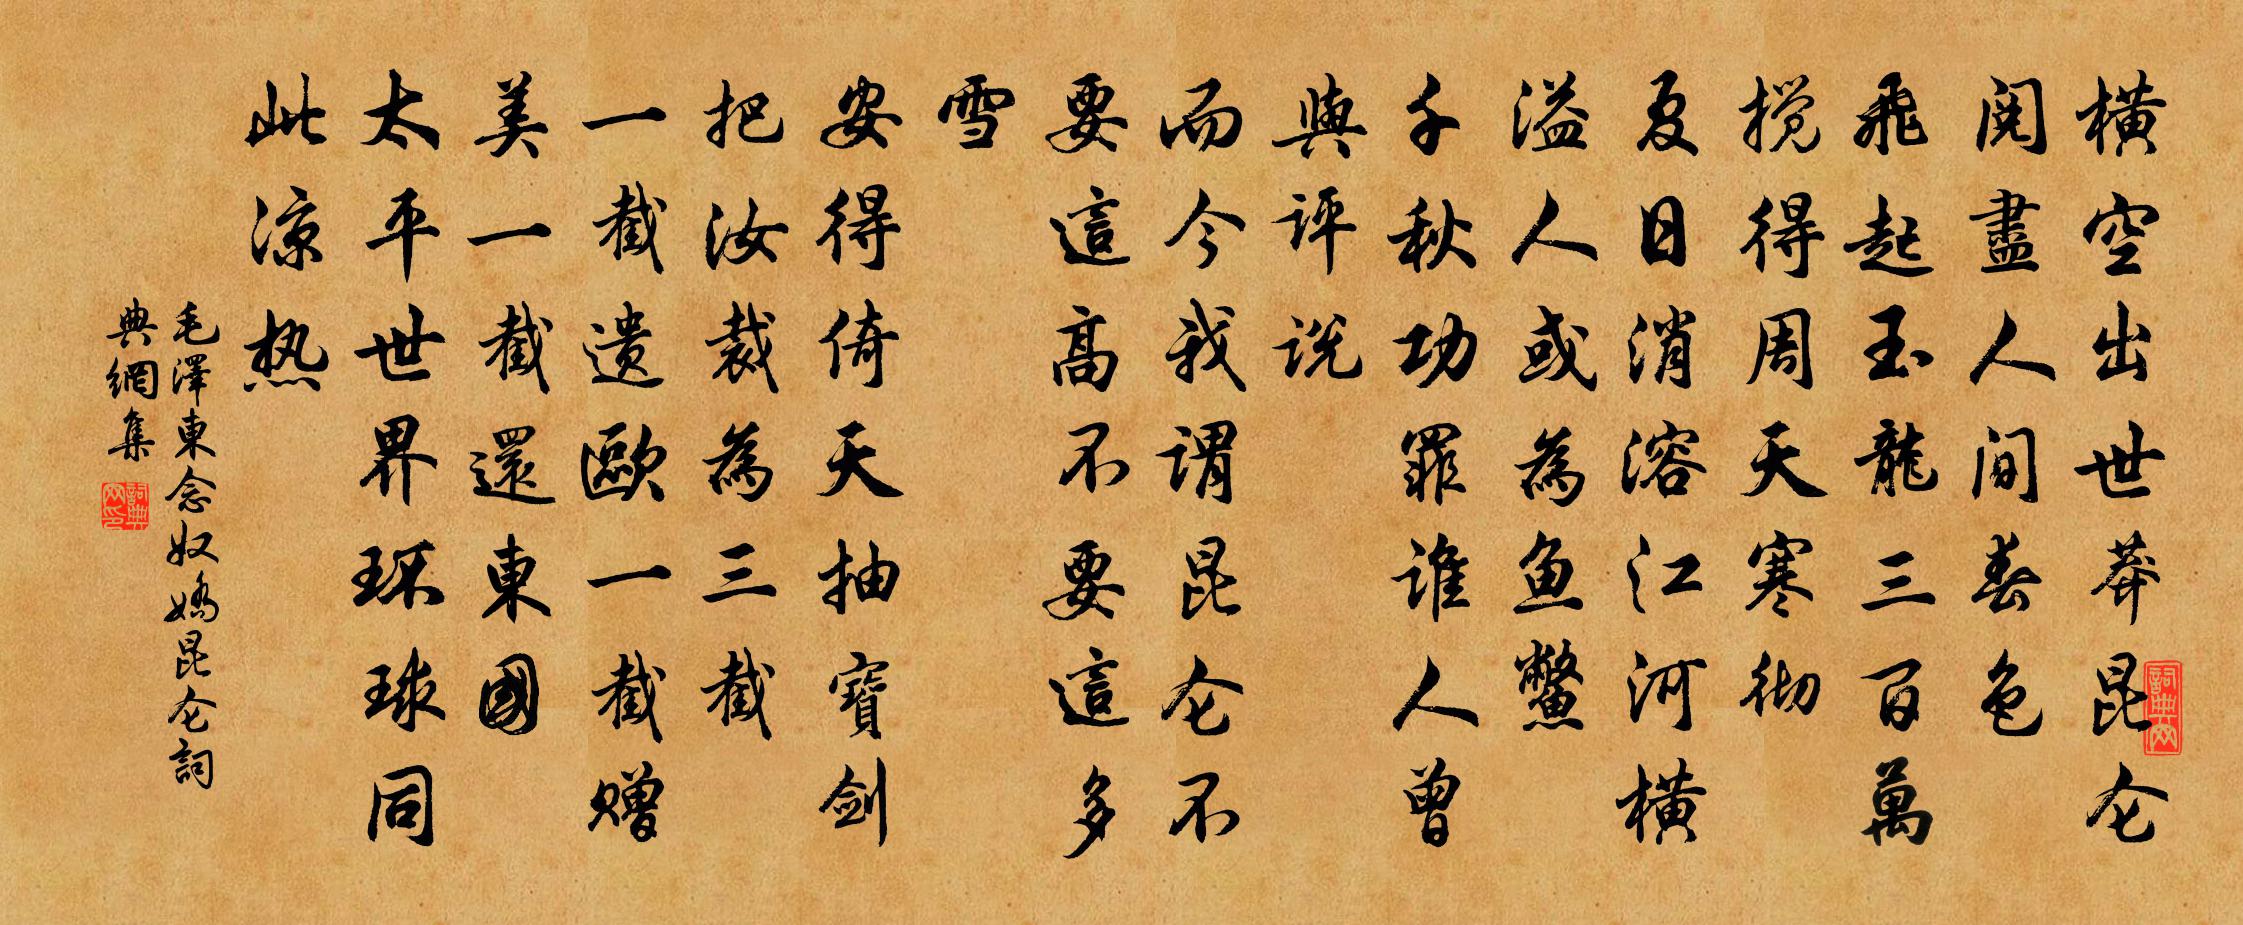 横空出世莽昆仑
阅盡人间春色
飛起玉龍三百萬
搅得周天寒彻
夏日消溶江河横
溢人或為鱼鱉
千秋功罪谁人曾
與评说
而今我谓昆仑不
要這高不要這多
雪
安得倚天抽寶剑
把汝裁為三截
一截遗歐一截赠
美一截還東國
太平世界环球同
此凉热
毛澤東念奴嬌昆仑詞
典網集
詞典网
詞典网印